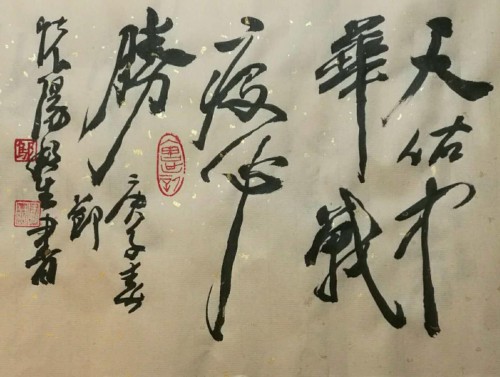 天佑中
華戰
疫必
勝
庚子春
鄭
陽生書